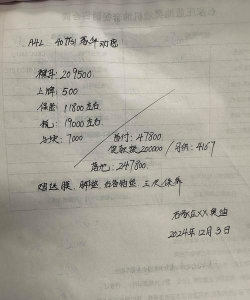 A4L 40TFSI 豪华动感
裸车: 209500
上牌: 500
保险: 11800左右
税: 19000左右
7000
首付: 47800
贷款拨200000 / 月供: 4167
落地: 247800
赠送 膜, 脚垫 后备箱垫 三次保养
石家庄XX奥迪
2024年12月3日